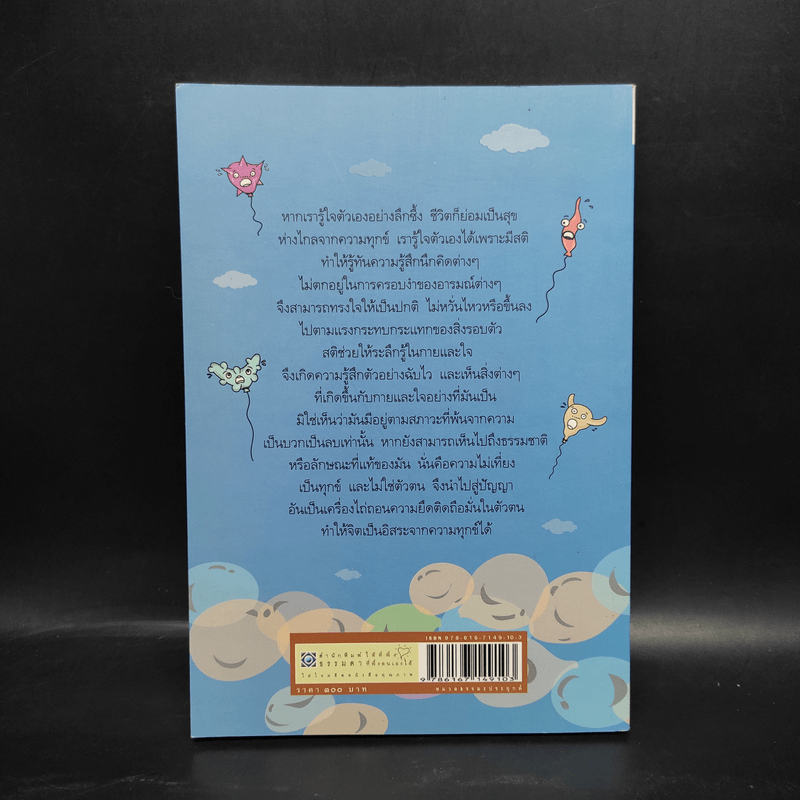 หากเรารู้ใจตัวเองอย่างลึกซึ้ง ชีวิตก็ย่อมเป็นสุข
ห่างไกลจากความทุกข์ เรารู้ใจตัวเองได้เพราะมีสติ
ทำให้รู้ทันความรู้สึกนึกคิดต่างๆ
ไม่ตกอยู่ในการครอบงำของอารมณ์ต่างๆ
จึงสามารถทรงใจให้เป็นปกติ ไม่หวั่นไหวหรือขึ้นลง
ไปตามแรงกระทบกระแทกของสิ่งรอบตัว
สติช่วยให้ระลึกรู้ในกายและใจ
จึงเกิดความรู้สึกตัวอย่างฉับไว และเห็นสิ่งต่างๆ
ที่เกิดขึ้นกับกายและใจอย่างที่มันเป็น
มิใช่เห็นว่ามันมีอยู่ตามสภาวะที่พ้นจากความ
เป็นบวกเป็นลบเท่านั้น หากยังสามารถเห็นไปถึงธรรมชาติ
หรือลักษณะที่แท้ของมัน นั่นคือความไม่เที่ยง
เป็นทุกข์ และไม่ใช่ตัวตน จึงนำไปสู่ปัญญา
อันเป็นเครื่องไถ่ถอนความยึดติดถือมั่นในตัวตน
ทำให้จิตเป็นอิสระจากความทุกข์ได้
ISBN 978-616-7149-10-3
สำนักพิมพ์ใต้ที่พึ่ง
ธรรมดา ที่พึ่งตนเองได้
ราคา ๑๐๐ บาท
9 786167 149103
หมวดธรรมะประยุกต์